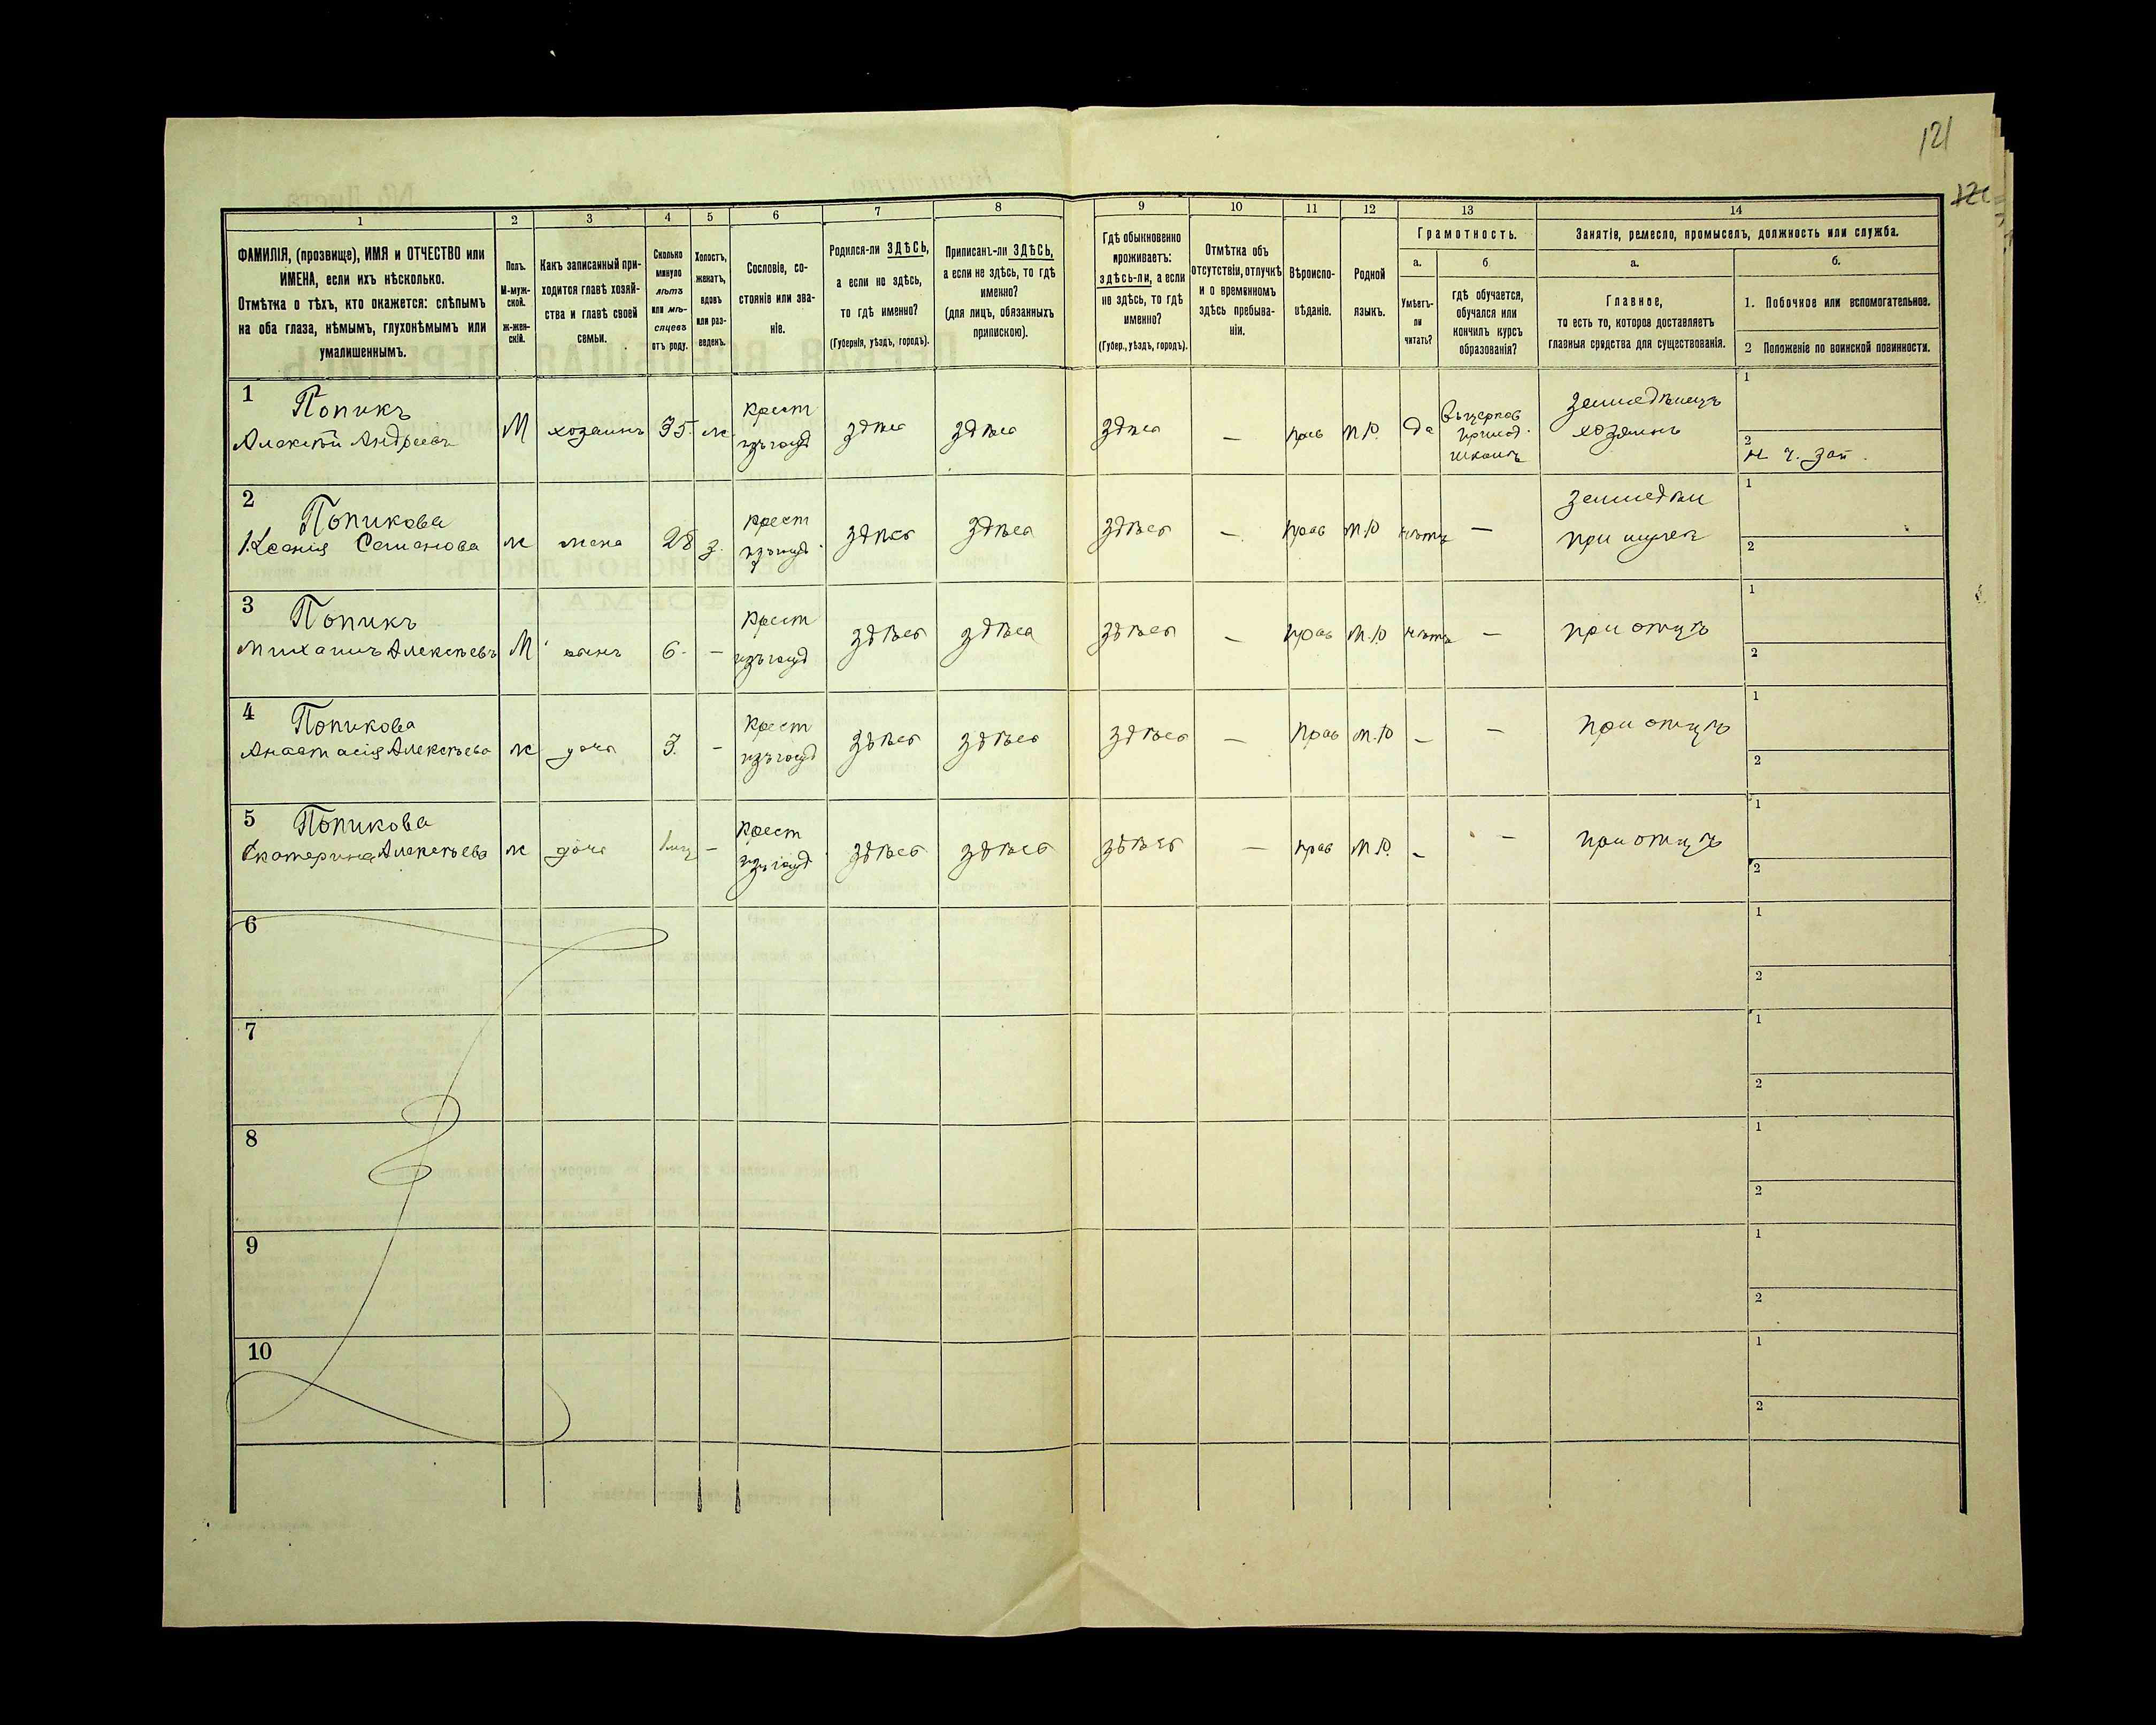 121
1 2 3 4 5 6 7 8 9 10 11 12 13 14
ФАМИЛІЯ, (прозвище), ИМЯ и ОТЧЕСТВО или
ИМЕНА, если ихъ нѣсколько.
Отмѣтка о тѣхъ, кто окажется: слѣпымъ
на оба глаза, нѣмымъ, глухонѣмымъ или
умалишеннымъ.
Полъ.
М-муж-
ской.
ж-жен-
скій.
Какъ записанный при-
ходится главѣ хозяй-
ства и главѣ своей
семьи.
Сколько
минуло
лѣтъ
или мѣ-
сяцевъ
отъ роду.
Холостъ,
женатъ,
вдовъ
или раз-
веденъ.
Сословіе, со-
стояніе или зва-
ніе.
Родился-ли ЗДѢСЬ,
а если не здѣсь,
то гдѣ именно?
(Губернія, уѣздъ, городъ).
Приписанъ-ли ЗДѢСЬ,
а если не здѣсь, то гдѣ
именно?
(для лицъ, обязанныхъ
припискою).
Гдѣ обыкновенно
проживаетъ:
здѣсь-ли, а если
не здѣсь, то гдѣ
именно?
(Губер., уѣздъ, городъ).
Отмѣтка объ
отсутствіи, отлучкѣ
и о временномъ
здѣсь пребыва-
ніи.
Вѣроиспо-
вѣданіе.
Родной
языкъ.
Грамотность.
а.
Умѣетъ-
ли
читать?
б.
гдѣ обучается,
обучался или
кончилъ курсъ
образованія?
Занятіе, ремесло, промыселъ, должность или служба.
а.
Главное,
то есть то, которое доставляетъ
главныя средства для существованія.
б.
1. Побочное или вспомогательное.
2 Положеніе по воинской повинности.
1 Попикъ
Алексѣй Андреевъ М хозяинъ 35. ж крест изъ госуд здѣсь здѣсь здѣсь — прав М.Ю. да
Въ церков
приход.
школѣ
земледѣлецъ
хозяинъ
1
2
2 Попикова
Ксенія Семенова ж жена 28 з. крест изъ госуд здѣсь здѣсь здѣсь — прав М.Ю нѣтъ —
земледѣл
при мужѣ
1
2
3 Попикъ
Михаилъ Алексѣевъ М сынъ 6. — крест изъ госуд здѣсь здѣсь здѣсь — прав М.Ю нѣтъ — при отцѣ
1
2
4 Попикова
Анастасія Алексѣева ж дочь 3. — крест изъ госуд здѣсь здѣсь здѣсь — прав М.Ю — — при отцѣ
1
2
5 Попикова
Екатерина Алексѣева ж дочь — крест изъ госуд здѣсь здѣсь здѣсь — прав М.Ю. — — при отцѣ
1
2
6
1
2
7
1
2
8
1
2
9
1
2
10
1
2